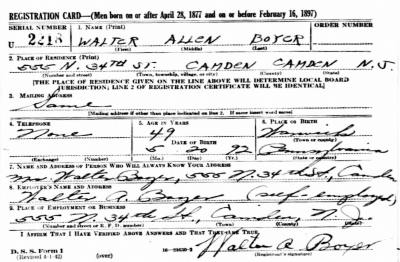 REGISTRATION CARD—(Men born on or after April 28, 1877 and on or before February 16, 1897)
SERIAL NUMBER 1. NAME (Print) ORDER NUMBER
U 2213 WALTER ALLEN BOYER
(First) (Middle) (Last)
2. PLACE OF RESIDENCE (Print)
555 N. 34TH ST. CAMDEN CAMDEN N.J.
(Number and street) (Town, township, village, or city) (County) (State)
[THE PLACE OF RESIDENCE GIVEN ON THE LINE ABOVE WILL DETERMINE LOCAL BOARD
JURISDICTION; LINE 2 OF REGISTRATION CERTIFICATE WILL BE IDENTICAL]
3. MAILING ADDRESS
Same
[Mailing address if other than place indicated on line 2. If same insert word same]
4. TELEPHONE 5. AGE IN YEARS 6. PLACE OF BIRTH
None 49 Warwick
DATE OF BIRTH (Town or county)
5 20 92 Pennsylvania
(Exchange) (Number) (Mo.) (Day) (Yr.) (State or country)
7. NAME AND ADDRESS OF PERSON WHO WILL ALWAYS KNOW YOUR ADDRESS
Mrs Walter Boyer, 555 N. 34th St, Camden
8. EMPLOYER'S NAME AND ADDRESS
Walter A. Boyer (self employed)
9. PLACE OF EMPLOYMENT OR BUSINESS
555 N. 34th St., Camden, N. J.
(Number and street or R. F. D. number) (Town) (County) (State)
I AFFIRM THAT I HAVE VERIFIED ABOVE ANSWERS AND THAT THEY ARE TRUE.
D. S. S. Form 1 Walter A. Boyer
(Revised 4-1-42) (over) (Registrant's signature)